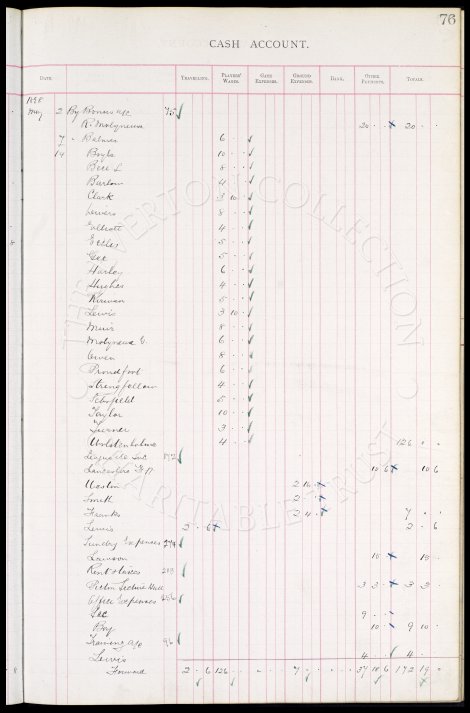 76
CASH ACCOUNT.
DATE. TRAVELLING. PLAYERS' WAGES. GATE EXPENSES. GROUND EXPENSES. BANK. OTHER PAYMENTS. TOTALS.
1898
May 2 By Bonus a/c 75
R. Molyneux 20 . . 20 . .
7 " Balmer 6 . .
14 Boyle 10 . .
Bell L 8 . .
Barlow 4 . .
Clark 3 10 .
8 . .
Elliott 4 . .
Eccles 5 . .
Gee 5 . .
Harley 6 . .
Hughes 4 . .
Kirwan 5 . .
Lewis 3 10 .
Muir 8 . .
Molyneux G. 6 . .
Owen 8 . .
Proudfoot 6 . .
Strongfellow 4 . .
Schofield 5 . .
Taylor 10 . .
Turner 3 . .
Wolstenholme 4 . . 126 . .
League 172
Lancashire F A 10 6 10 6
Weston 2 10 .
Smith 2 . .
Franks 2 . 7 . .
Lewis 2 . 6 2 . 6
Sunday Expenses
Lawson 15 . 15 .
Rent & taxes 213
Picton Lecture Hall 3 3 . 3 3 .
Office Expenses 256
Sec 9 . .
Boy 10 . 9 10 .
Training a/c 96
Lewis 4 . . 4 . .
Forward 2 . 6 126 . . 7 . . 37 18 6 172 19 .
THE EVERTON COLLECTION CHARITABLE TRUST